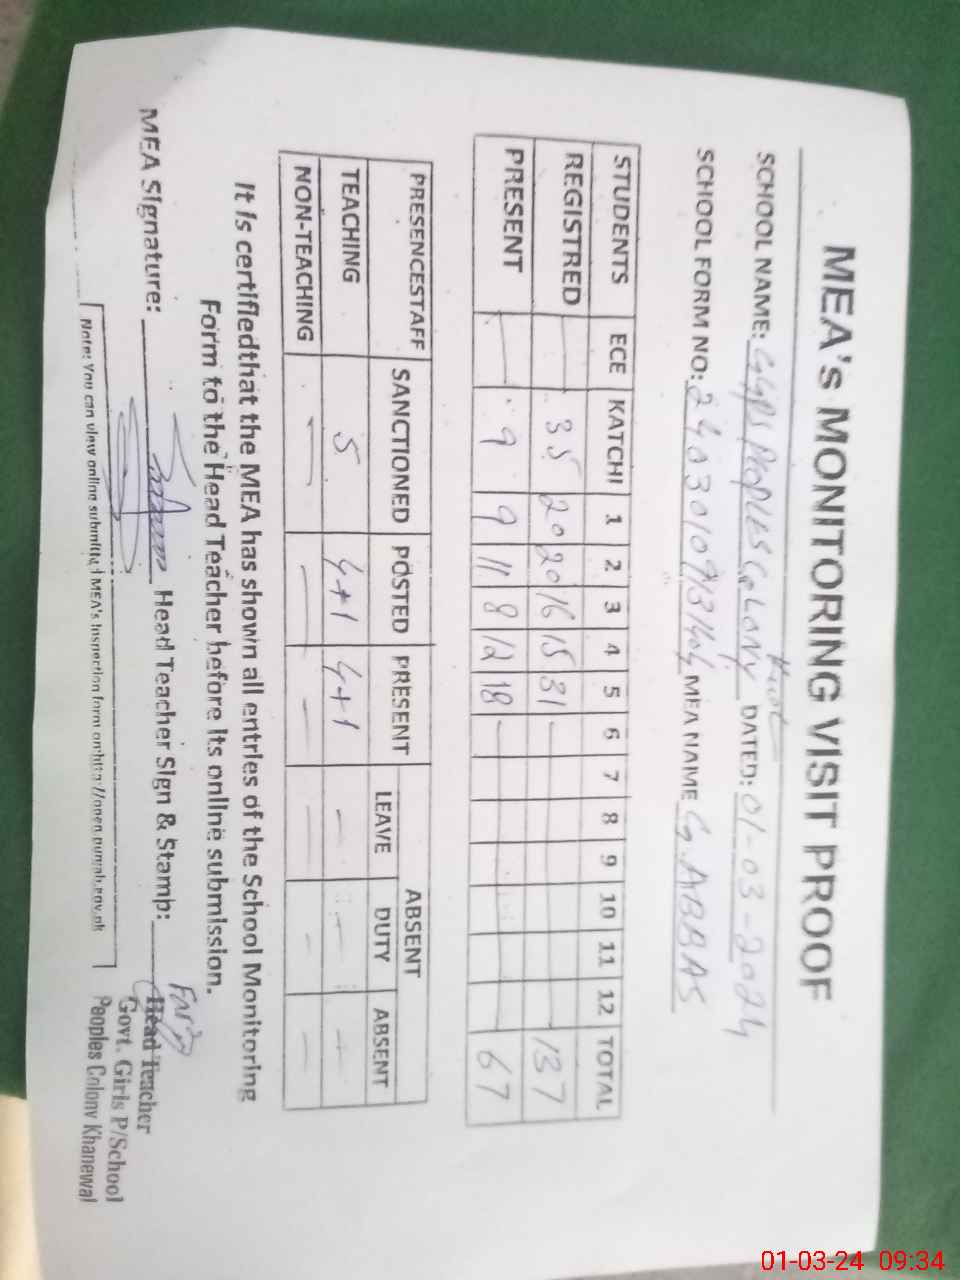 MEA's MONITORING VISIT PROOF
SCHOOL NAME: GGPS PEOPLES COLONY DATED: 01-03-2024
SCHOOL FORM NO: MEA NAME G. ABBAS
STUDENTS ECE KATCHI 1 2 3 4 5 6 7 8 9 10 11 12 TOTAL
REGISTRED — 35 20 20 16 15 31 — 137
PRESENT — 9 9 11 8 12 18 — 67
PRESENCESTAFF SANCTIONED POSTED PRESENT ABSENT
LEAVE DUTY ABSENT
TEACHING 5 4+1 4+1 — — —
NON-TEACHING — — — — — —
It is certifiedthat the MEA has shown all entries of the School Monitoring
Form to the Head Teacher before its online submission.
MEA Signature: Head Teacher Sign & Stamp:
Head Teacher
Govt. Girls P/School
Peoples Colony Khanewal
Note: You can view online submitted MEA's Inspection form on http://open.punjab.gov.pk
01-03-24 09:34